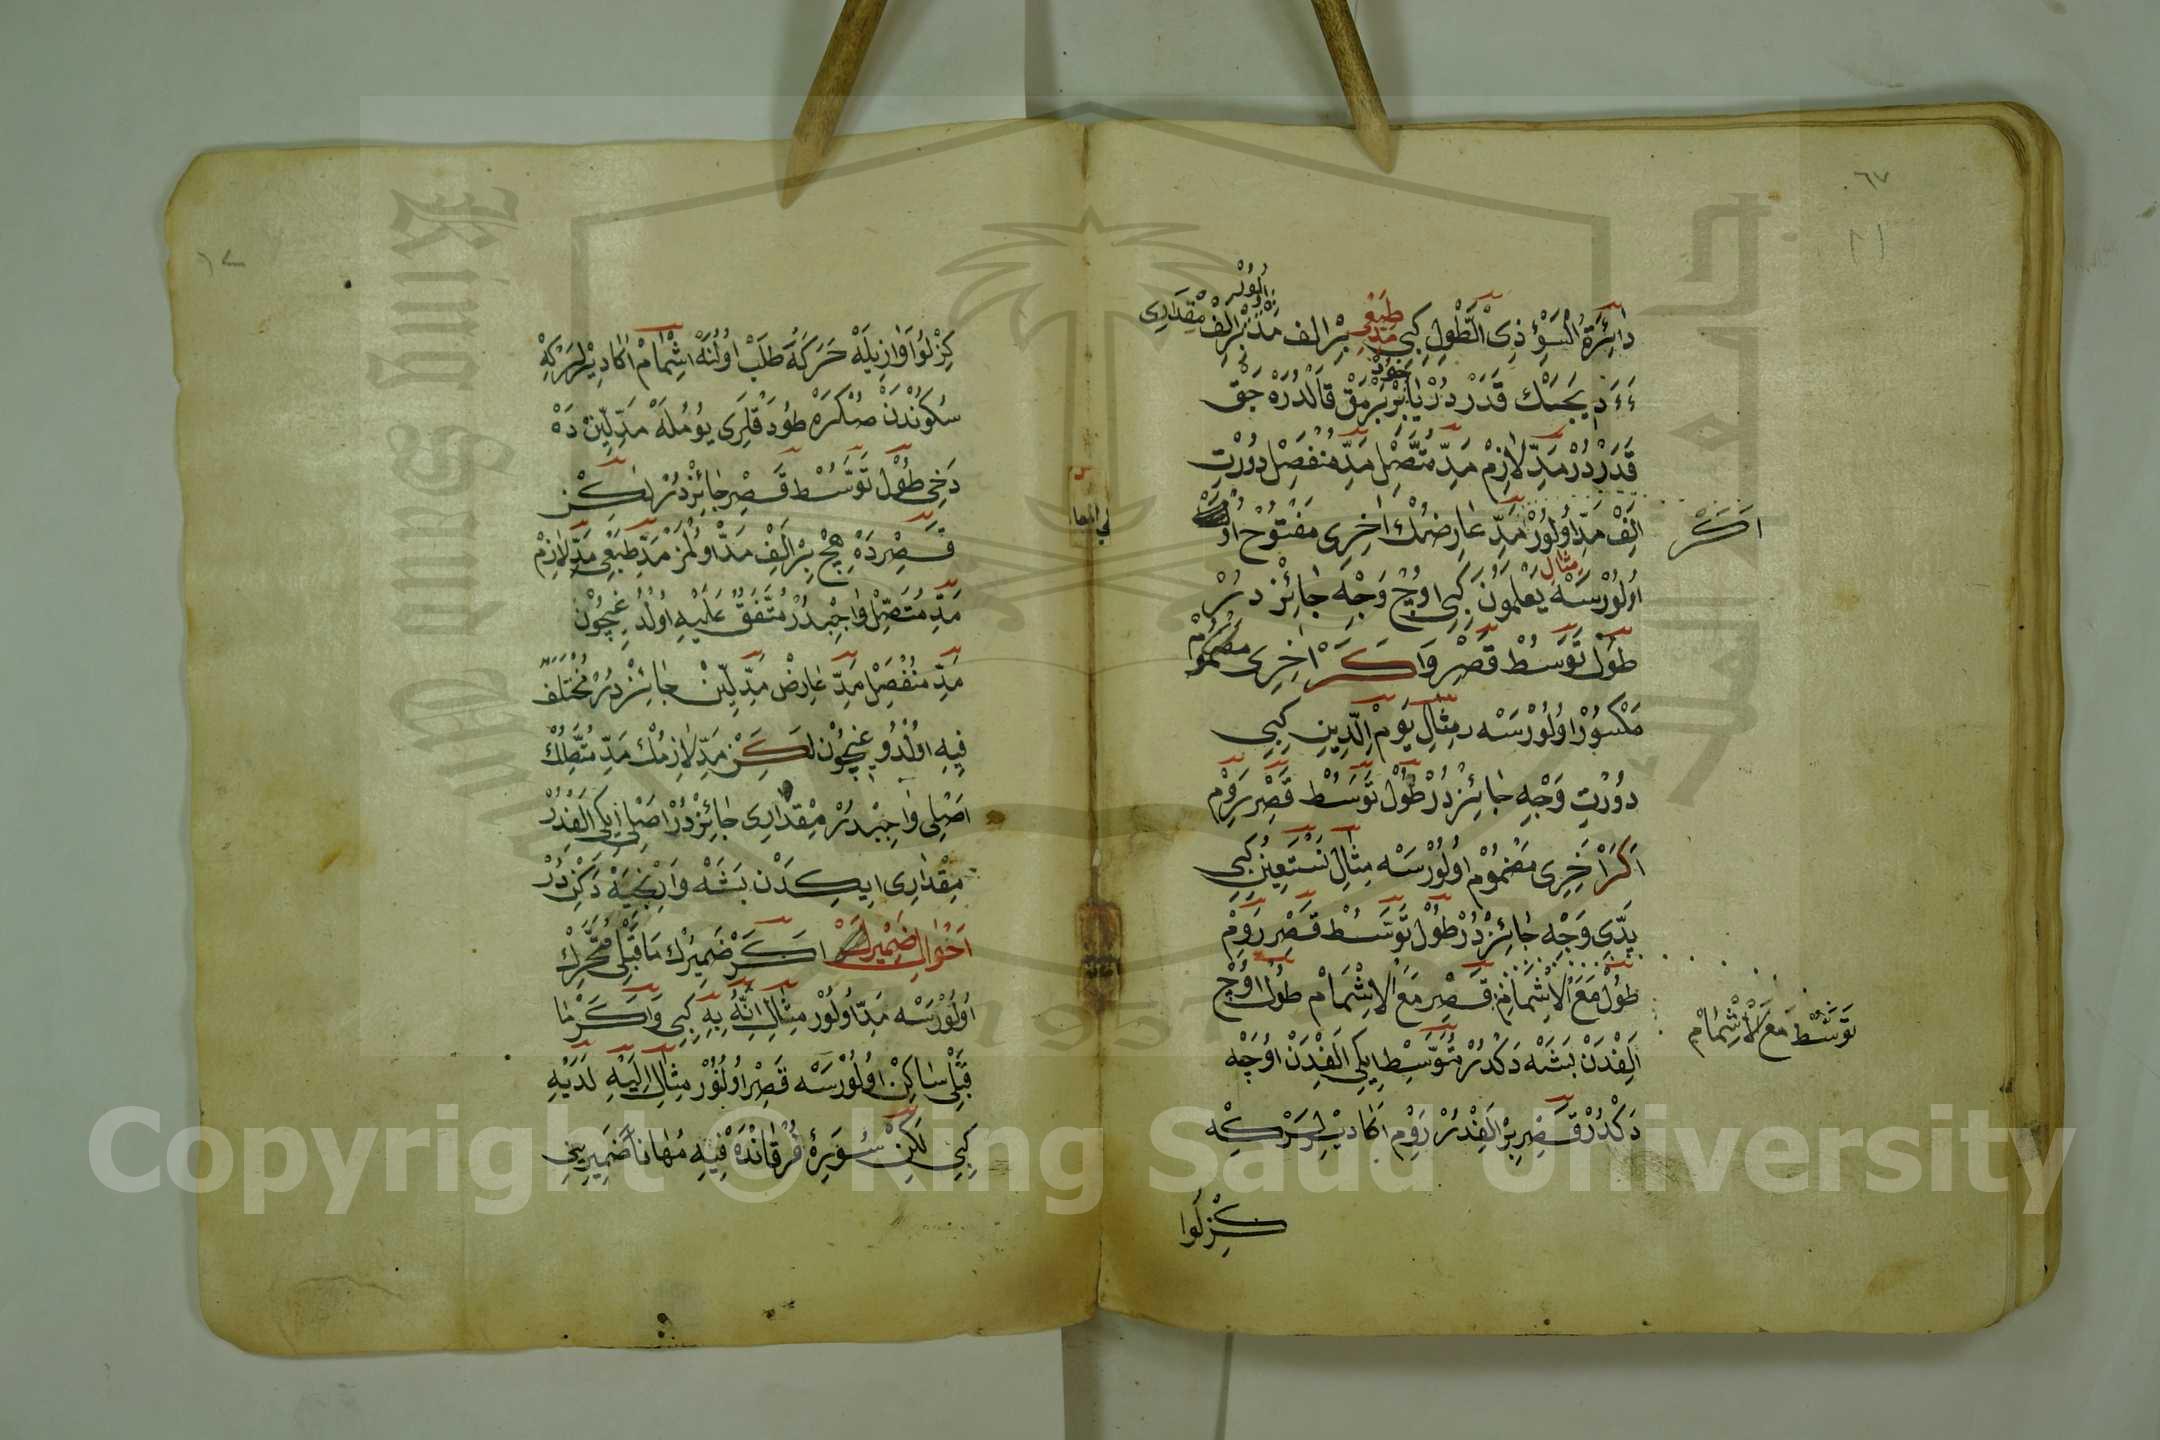 ٦٧
٢١
دَائِرَةُ السَّوْءِ ذِى الطَّوْلِ كِبِى مَدِّ طَبَعِى بِرْ الف مَدْدُرْ بِرْ اَلِفْ مِقْدَارِى
اُولُورْ
ءَءَ دِيَجَكْ قَدَرْ دُرْ يَا بِرْ بَرْمَقْ قَالْدُرَه جَقْ
خُودْ
قَدَرْ دُرْ مَدِّ لَازِمْ مَدِّ مُتَّصِلْ مَدِّ مُنْفَصِلْ دُورْتْ
اَلِفْ مَدِّ اُولُورْ مَدِّ عَارِضُكْ اٰخِرِى مَفْتُوحْ
اَكَرْ
اُولُورْسَه مِثَالِ يَعْلَمُونَ كِبِى اوُچْ وَجْهِ جَائِزْ دُرْ
طُولْ تَوَسُّطْ قَصْرْ وَاكَرْ اٰخِرِى مَضْمُومْ
مَكْسُورْ اُولُورْسَه مِثَالِ يَوْمِ الدِّينِ كِبِى
دُورْتْ وَجْهِ جَائِزْدُرْ طُولْ تَوَسُّطْ قَصْرْ رَوْمْ
اَكَرْ اٰخِرِى مَضْمُومْ اُولُورْسَه مِثَالِ نَسْتَعِينُ كِبِى
يَدِّى وَجْه جَائِزْدُرْ طُولْ تَوَسُّطْ قَصْرْ رَوْمْ
طُولْ مَعَ الْاِشْمَامْ قَصْرْ مَعَ الْاِشْمَامْ طُولْ اوُچْ
تَوَسُّطْ مَعَ الْاِشْمَامْ
اَلِفْدَنْ بَشَه دَكْدُرْ تَوَسُّطْ اِيكِى اَلِفْدَنْ اوُچَه
دَكْدُرْ قَصْرْ بِرْ اَلِفْدُرْ رَوْمْ اَكَا دِيرْلَرْكِه
كِزْلُوا
كِزْلُوا وَازِيلَه حَرَكَه طَلَبْ اُولُنَه اِشْمَامْ اَكَا دِيرْلَرْكِه
سُكُونْدَنْ صُكْرَه طُودَقْلَرِى يُومُلَه مَدِّ لِينْ دَه
دَخِى طُولْ تَوَسُّطْ قَصْرْ جَائِزْدُرْ لٰكِنْ
قَصْرْدَه هِيچْ بِرْ اَلِفْ مَدّ اُولْمَزْ مَدِّ طَبَعِى مَدِّ لَازِمْ
مَدِّ مُتَّصِلْ وَاجِبْدُرْ مُتَّفَقٌ عَلَيْهِ اُولْدُغِيچُونْ
مَدِّ مُنْفَصِلْ مَدِّ عَارِضْ مَدِّ لِينْ جَائِزْدُرْ مُخْتَلَفْ
فِيهِ اُولْدُوغِيچُونْ لٰكِنْ مَدِّ لَازِمُكْ مَدِّ مُتَّصِلُكْ
اَصْلِى وَاجِبْدُرْ مِقْدَارِى جَائِزْدُرْ اَصْلِى اِيكِى اَلِفْدُرْ
مِقْدَارِى اِيكِدَنْ بَشَه وَارِنْجَيَه دَكِنْدُرْ
اَحْوَالِ ضَمِيرْ اَكَرْ ضَمِيرُكْ مَاقَبْلِى مُتَحَرِّكْ
اُولُورْسَه مَدّ اُولُورْ مِثَالِ اِنَّهُ بِهِ كِبِى وَاَكَرْ مَا
قَبْلِى سَاكِنْ اُولُورْسَه قَصْرْ اُولُنُورْ مِثَالِ اِلَيْهِ لَدَيْهِ
كِبِى لٰكِنْ سُورَهِٔ فُرْقَانْدَه فِيهِ مُهَانًا ضَمِيرِينِى
Copyright © King Saud University
King Saud University
1957